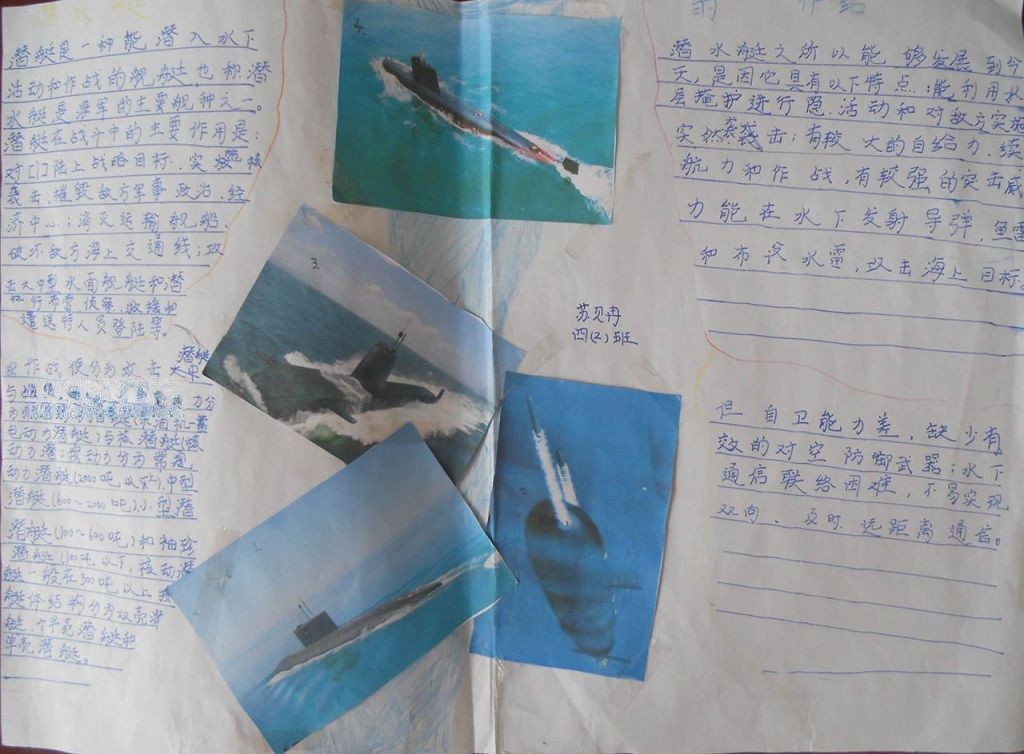 潜水艇
潜艇是一种能潜入水下
活动和作战的舰艇也称潜
水艇是海军的主要舰种之一。
潜艇在战斗中的主要作用是:
对陆上战略目标实施核
袭击,摧毁敌方军事政治、经
济中心;消灭运输舰船、
破坏敌方海上交通线;攻
击大中型水面舰艇和潜
执行布雷侦察、救援和
遣送特人员登陆等。
潜艇
按作战使分为攻击
与 力分
为 潜艇(柴油机-蓄
电动力潜艇)与核潜艇(核
动力潜;按动力分为常规
动力潜艇(2000吨以 )、中型
潜艇(600~2000吨)、小型潜
潜艇(100~600吨)和袖珍
潜艇(100吨以下,核动潜
艇一般在300吨以上
艇体结构分为双壳潜
艇个半壳潜艇和
单壳潜艇。
4.
3.
苏贝冉
四(2)班
2.
1.
的
潜水艇之所以能够发展到今
天,是因它具有以下特点:能利用水
层掩护进行隐活动和对敌方实施
突然袭击;有较大的自给力、续
航力和作战,有较强的突击威
力能在水下发射导弹、鱼雷
和布设水雷,攻击海上目标。
但自卫能力差,缺少有
效的对空防御武器;水下
通信联络困难,不易实现
双向、及时远距离通信。